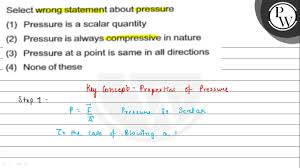 Select wrong statement about pressure
(1) Pressure is a scalar quantity
(2) Pressure is always compressive in nature
(3) Pressure at a point is same in all directions
(4) None of these
PW
Key Concept - Properties of Pressure
Step 1 -
P = F/A Pressure is Scalar
In the case of Blowing a